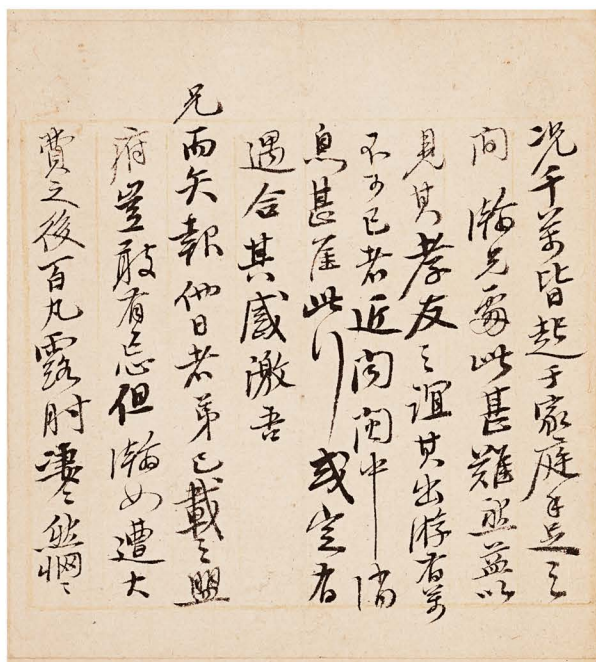 况千萬皆起于家庭手足之
间瀚兄處此甚難然益以
見其孝友之誼其出游有萬
不可已者近闻闽中消
息甚佳此行或定有
遇合其感激吾
兄而矢報他日者弟已載之盟
府豈敢有忘但瀚如遭大
費之後百凡露肘凄〻然惘〻